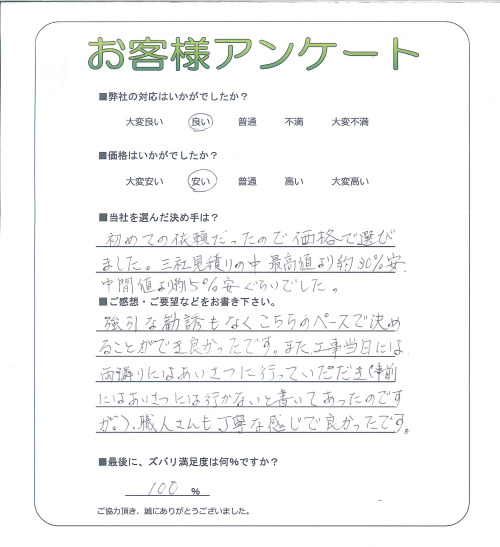 お客様アンケート
■弊社の対応はいかがでしたか？
大変良い 良い 普通 不満 大変不満
■価格はいかがでしたか？
大変安い 安い 普通 高い 大変高い
■当社を選んだ決め手は？
初めての依頼だったので価格で選び
ました。三社見積りの中最高値より約30%安
中間値より約5%安ぐらいでした。
■ご感想・ご要望などをお書き下さい。
強引な勧誘もなくこちらのペースで決め
ることができ良かったです。また、工事当日には
両隣りにはあいさつに行っていただき(事前
にはあいさつには行かないと書いてあったのです
が。)、職人さんも丁寧な感じで良かったです。
■最後に、ズバリ満足度は何%ですか？
100 %
ご協力頂き、誠にありがとうございました。